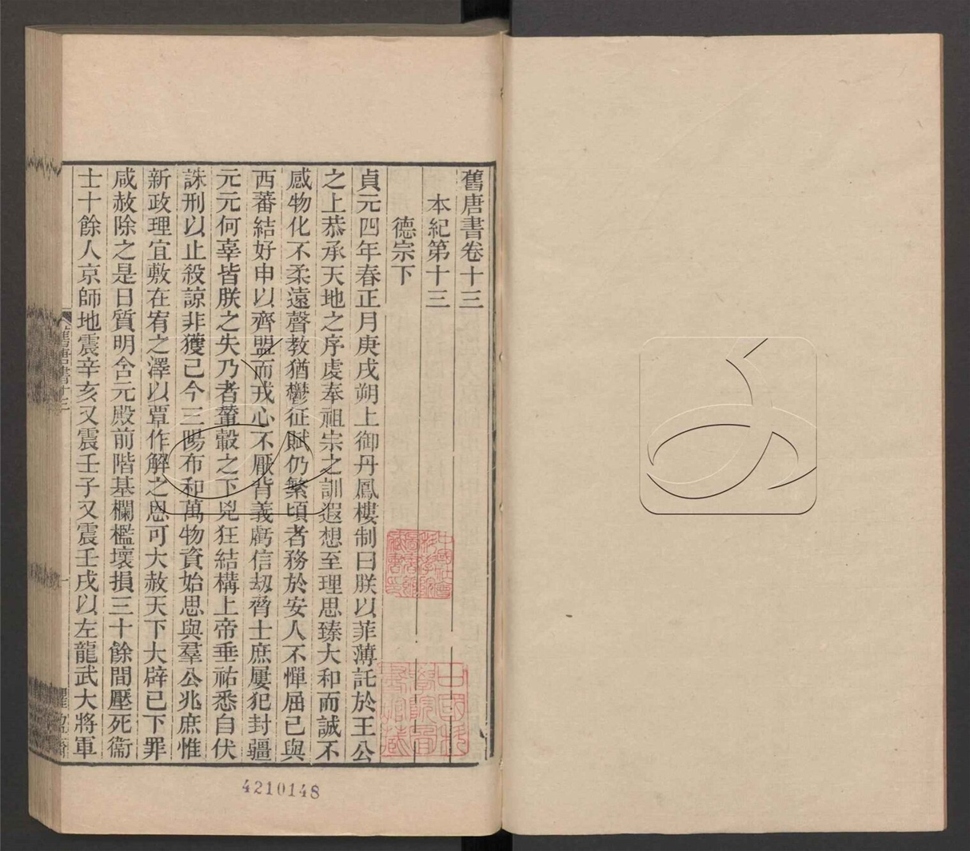 舊唐書卷十三
本紀第十三
德宗下
貞元四年春正月庚戌朔上御丹鳳樓制曰朕以菲薄託於王公
之上恭承天地之序虔奉祖宗之訓遐想至理思臻大和而誠不
感物化不柔遠聲教猶鬱征賦仍繁頃者務於安人不憚屈己與
西蕃結好申以齊盟而戎心不厭背義虧信劫脅士庶屢犯封疆
元元何辜皆朕之失乃者輦轂之下兇狂結構上帝垂祐悉自伏
誅刑以止殺諒非獲已今三陽布和萬物資始思與羣公兆庶惟
新政理宜敷在宥之澤以覃作解之恩可大赦天下大辟已下罪
咸赦除之是日質明含元殿前階基欄檻壞損三十餘間壓死衞
士十餘人京師地震辛亥又震壬子又震壬戌以左龍武大將軍
舊唐書十三
一
4210148